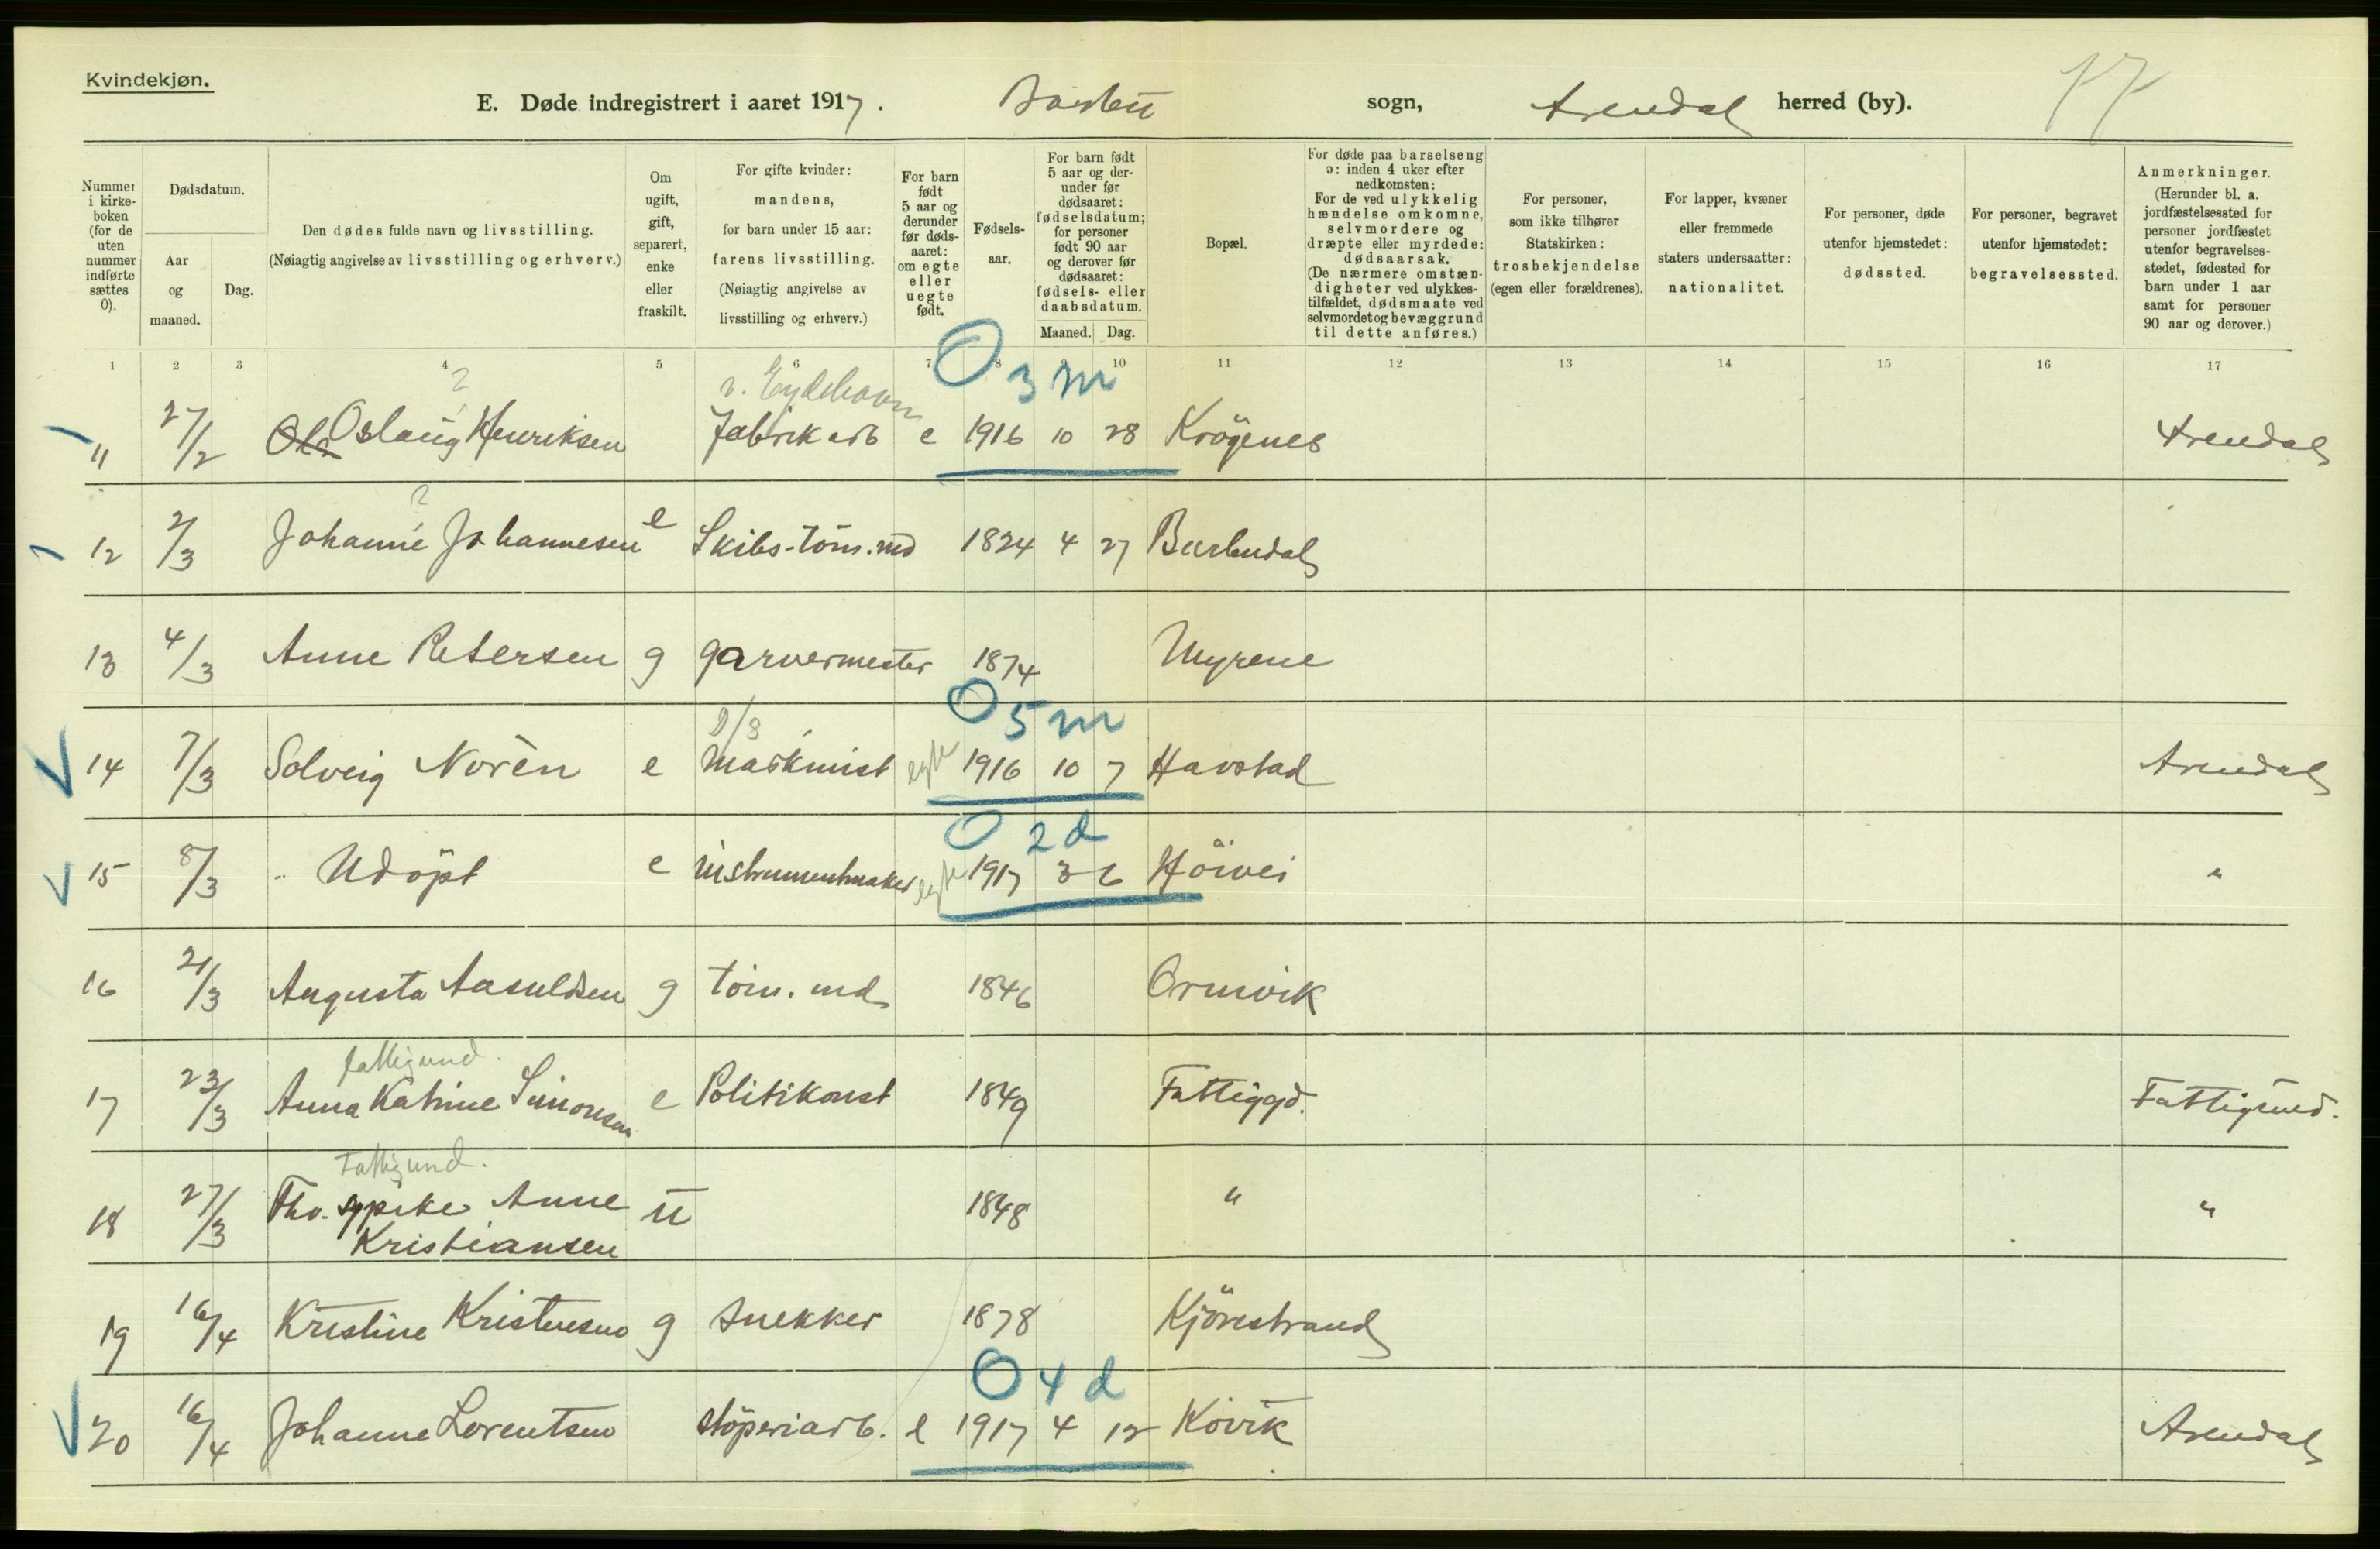 Kvindekjøn.
E. Døde indregistrert i aaret 1917. sogn, Arendal herred (by). 17
Nummer i kirkeboken (for de uten nummer indførte sættes 0).
Dødsdatum.
Aar og maaned.
Dag.
Den dødes fulde navn og livsstilling.
(Nøiagtig angivelse av livsstilling og erhverv.)
Om ugift, gift, separert, enke eller fraskilt.
For gifte kvinder: mandens, for barn under 15 aar: farens livsstilling.
(Nøiagtig angivelse av livsstilling og erhverv.)
For barn født 5 aar og derunder før dødsaaret: om egte eller uegte født.
Fødselsaar.
For barn født 5 aar og derunder før dødsaaret: fødselsdatum; for personer født 90 aar og derover før dødsaaret: fødsels- eller daabsdatum.
Maaned. Dag.
Bopæl.
For døde paa barselseng ɔ: inden 4 uker efter nedkomsten:
For de ved ulykkelig hændelse omkomne, selvmordere og dræpte eller myrdede: dødsaarsak.
(De nærmere omstændigheter ved ulykkestilfældet, dødsmaate ved selvmordet og bevæggrund til dette anføres.)
For personer, som ikke tilhører Statskirken: trosbekjendelse (egen eller forældrenes).
For lapper, kvæner eller fremmede staters undersaatter: nationalitet.
For personer, døde utenfor hjemstedet: dødssted.
For personer, begravet utenfor hjemstedet: begravelsessted.
Anmerkninger.
(Herunder bl. a. jordfæstelsessted for personer jordfæstet utenfor begravelsesstedet, fødested for barn under 1 aar samt for personer 90 aar og derover.)
1 2 3 4 5 6 7 8 9 10 11 12 13 14 15 16 17
? v. Eydehavn O 3 m
11 27/2 Oslaug Henriksen Fabrikarb e 1916 10 28 Krögenes Arendal
?
12 2/3 Johanne Johannesen e Skibs-töm.md 1824 4 27 Barbudal
13 4/3 Anne Petersen g garvermester 1874 Myrene
O 5 m
D/S
14 7/3 Solveig Norèn e Maskinist egte 1916 10 7 Havstad Arendal
O 2 d
15 8/3 Udöpt e instrumentmaker egte 1917 3 6 Höivei "
16 21/3 Augusta Aasuldsen g töm. md. 1846 Ormvik
Fattigund.
17 23/3 Anna Katrine Simonsen e Politikonst 1849 Fattiggd. Fattigund.
Fattigund.
18 27/3 Anne u 1848 " "
Kristiansen
19 16/4 Kristine Kristensen g snekker 1878 Kjörrestrand
O 4 d
20 16/4 Johanne Lorentsen stöperiarb. e 1917 4 12 Kövik Arendal